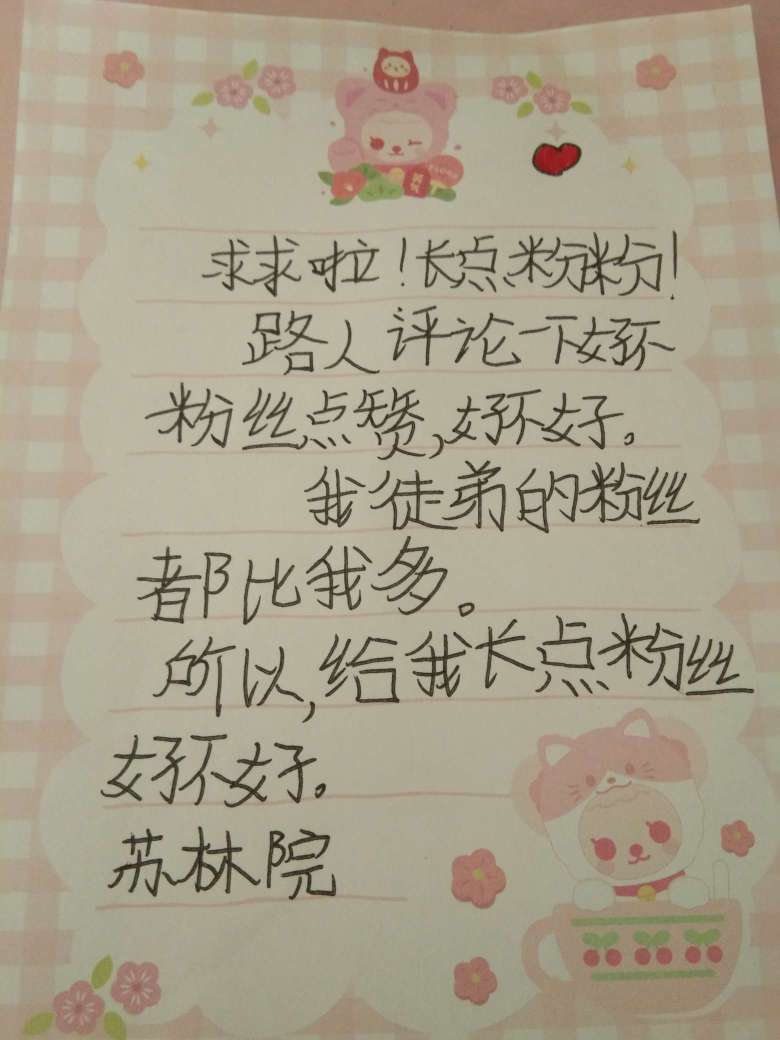 求求啦！长点粉粉！
路人评论一下好不
粉丝点赞，好不好。
我徒弟的粉丝
都比我多。
所以，给我长点粉丝
好不好。
苏林院